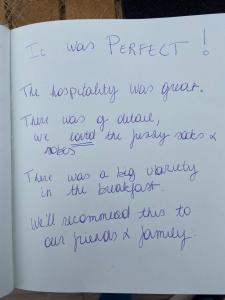 It was PERFECT!
The hospitality was great.
There was g detail,
we loved the fuzzy socks &
robes
There was a big variety
in the breakfast.
We'll recommend this to
our friends & family.